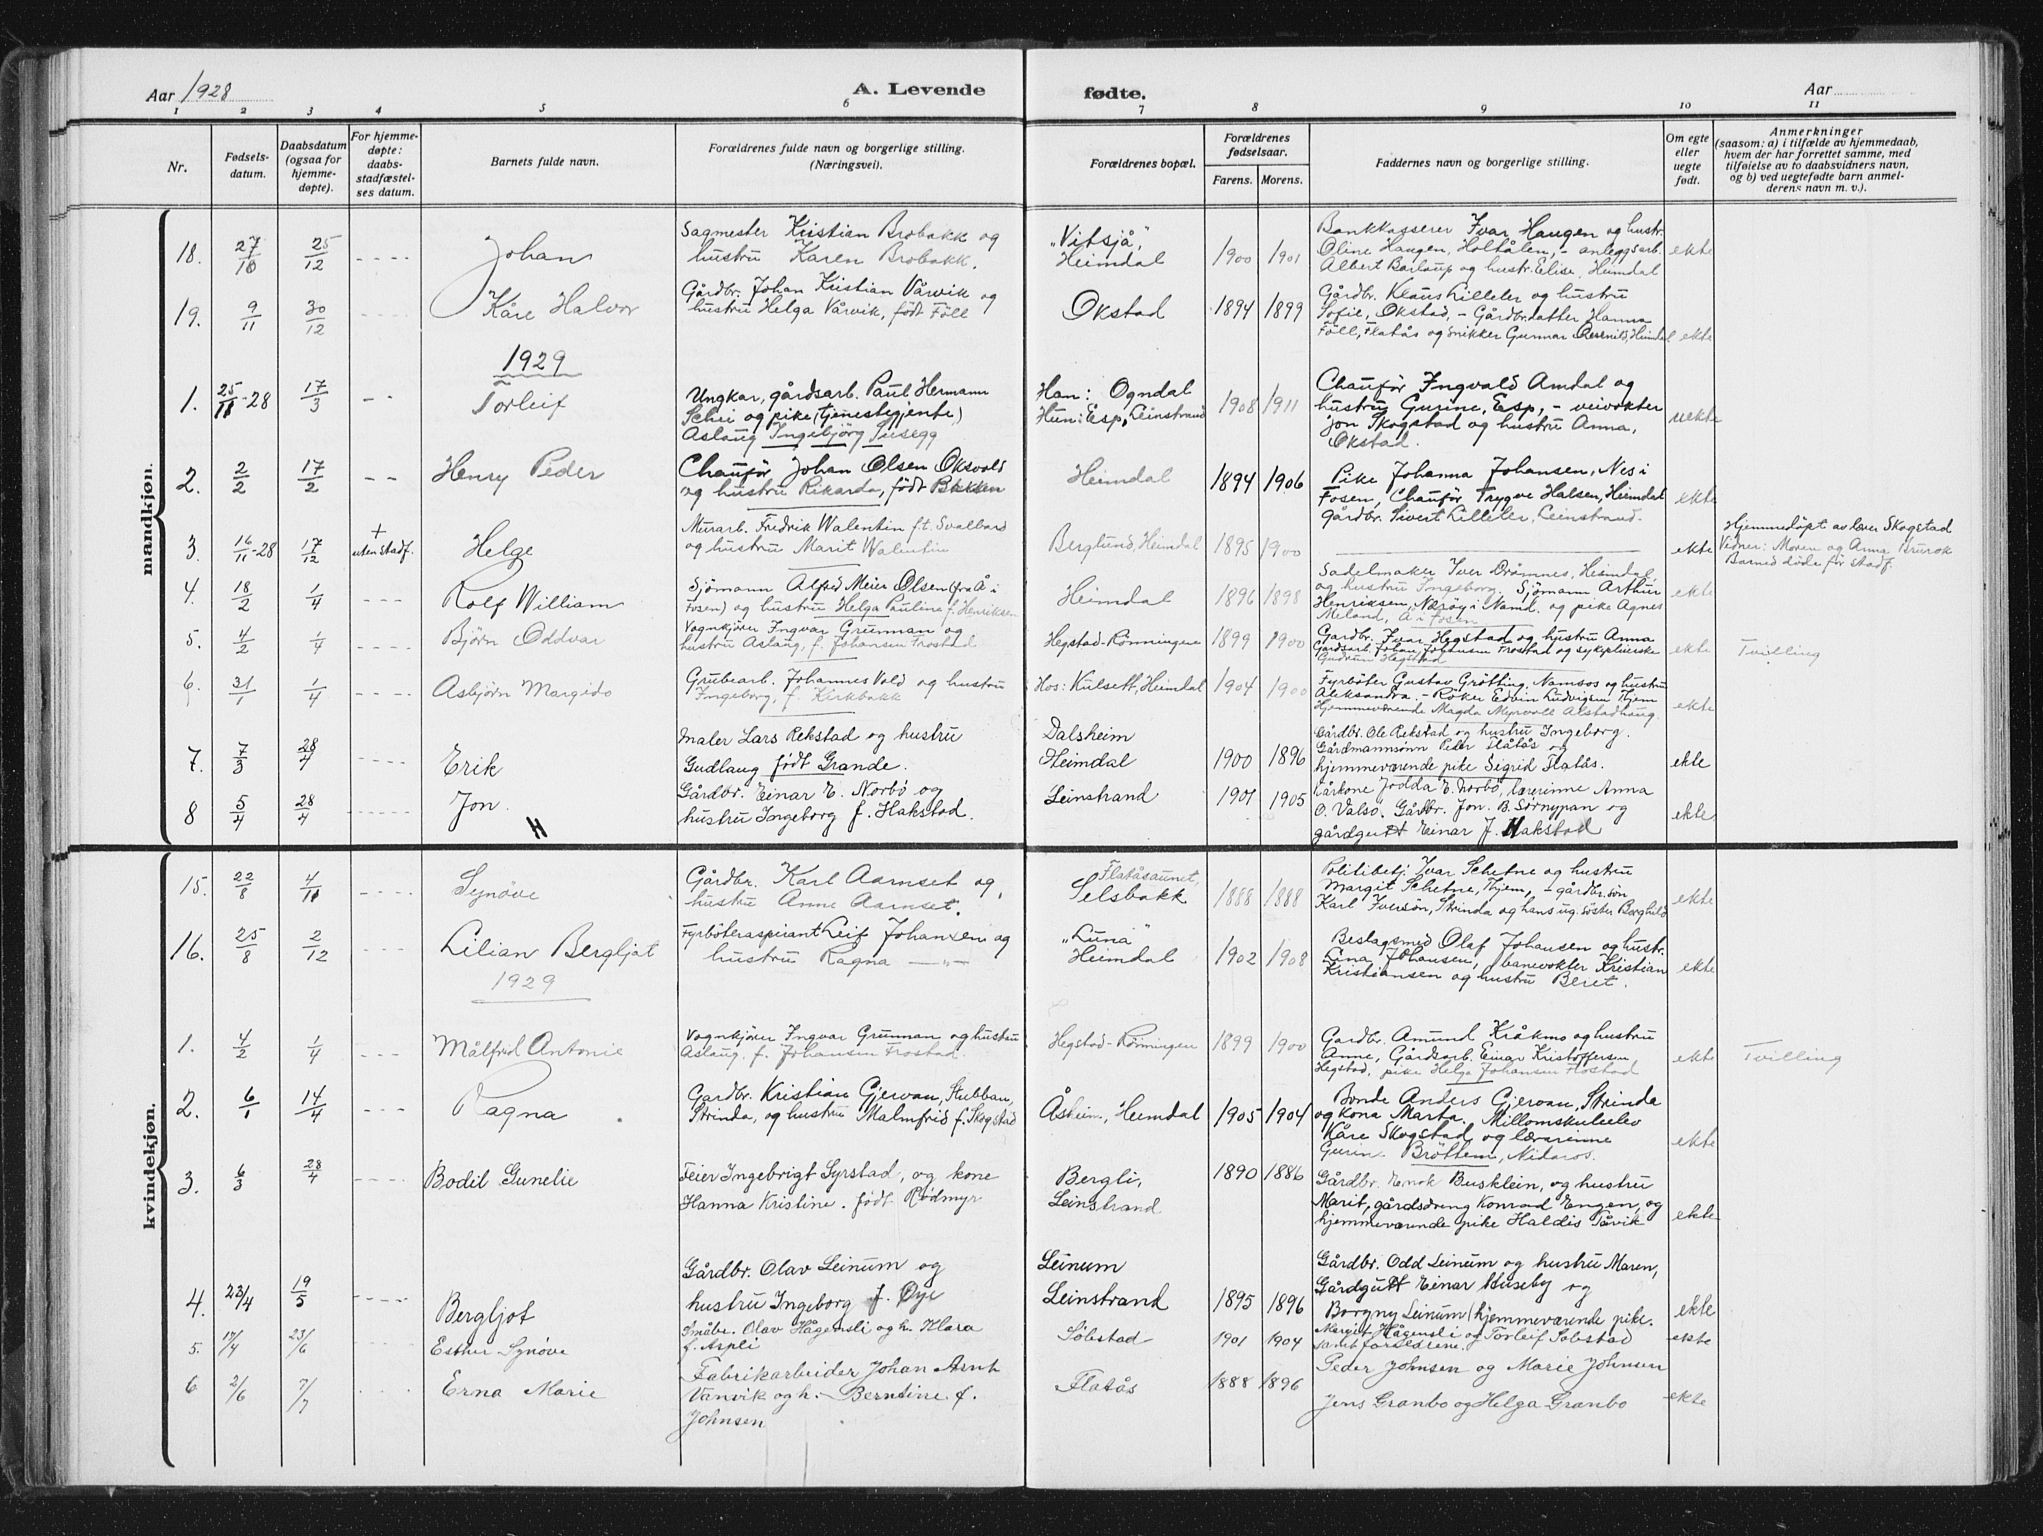 Aar 1928
A. Levende
fødte.
Aar
1 2 3 4 5 6 7 8 9 10 11
Nr.
Fødsels-
datum.
Daabsdatum
(ogsaa for
hjemme-
døpte).
For hjemme-
døpte:
daabs-
stadfæstel-
ses datum.
Barnets fulde navn.
Forældrenes fulde navn og borgerlige stilling.
(Næringsvei).
Forældrenes bopæl.
Forældrenes
fødselsaar.
Farens. Morens.
Faddernes navn og borgerlige stilling.
Om egte
eller
uegte
født.
Anmerkninger
(saasom: a) i tilfælde av hjemmedaab,
hvem der har forrettet samme, med
tilføielse av to daabsvidners navn,
og b) ved uegtefødte barn anmel-
derens navn m. v.).
mandkjøn.
18. 27/10 25/12 - - - - Johan
Sagmester Kristian Brobakk og
hustru Karen Brobakk.
"Vitsjå",
Heimdal
1900 1901
Bankkasserer Ivar Haugen og hustr.
Oline Haugen, Holtålen, - anleggsarb.
Albert Barlaup og hustr. Elise, Heimdal
ekte
19. 9/11 30/12 Kåre Halvor
Gårdbr. Johan Kristian Vårvik og
hustru Helga Vårvik, født Föll
Okstad
1894 1899
Gårdbr. Klaus Lilleler og hustru
Sofie, Okstad, - Gårdbr.datter Hanna
Föll, Flatås og snikker Gunnar Heimdal
ekte
1929
1. 25/11-28 17/3 - - Torleif
Ungkar, gårdsarb. Paul Hermann
Schei og pike (tjenestejente)
Aslaug Ingebjörg Susegg
Han: Ogndal
Hun: Esp, Leinstrand
1908 1911
Chauför Ingvald Amdal og
hustru Gurine, Esp, - veivokter
Jon Skogstad og hustru Anna,
Okstad.
uekte
2. 2/2 17/2 - - Henry Peder
Chauför Johan Olsen Oksvold
og hustru Rikarda, född Bakken
Heimdal
1894 1906
Pike Johanna Johansen, Nes i
Fosen, Chauför Trygve Halsen, Heimdal
gårdbr. Sivert Lilleler, Leinstrand.
ekte
3. 16/11-28 17/12 + uten stadf. Helge
Murarb. Fredrik Walentin f.t. Svalbard
og hustru Marit Walentin
Berglund, Heimdal
1895 1900
ekte
Hjemmedöpt av lærer Skogstad
Vidner: Moren og Anna Brurok
Barnet döde för stadf.
4. 18/2 1/4 - - - Rolf William
Sjömann Alfred Meier Olsen (fra Å i
Fosen) og hustru Helga Pauline f. Henriksen
Heimdal
1896 1898
Sadelmaker Iver Drömnes, Heimdal
og hustru Ingeborg. Sjömann Arthur
Henriksen, Næröy i Namd. og pike Agnes
Meland, Å i Fosen
ekte
5. 4/2 1/4 - - - Björn Oddvar
Vognkjörer Ingvar Grunnan og
hustru Aslaug, f. Johansen Frostad
Hegstad-Rönningen
1899 1900
Gardbr. Ivar Hegstad og hustru Anna
Gardsarb. Johan Johansen Frostad og sykepleierske
Gudrun Hegstad
ekte
Tvilling
6. 31/1 1/4 - - - Asbjörn Margido
Grubearb. Johannes Vold og hustru
Ingeborg, f. Kirkbakk
Hos: Kulsett, Heimdal
1904 1900
Fyrböter Gustav Grötting, Namsos og hustru
Aleksandra. - Röker Edvin Ludvigsen Tjem
Hjemmeværende Magda Myrvoll Alstadhaug.
ekte
7. 7/3 28/4 - - - - Erik
Maler Lars Rekstad og hustru
Gudlaug född Grande.
Dalsheim
Heimdal
1900 1896
Gårdbr. Ole Rekstad og hustru Ingeborg.
Gårdmannsönn Peder Flatås og
hjemmeværende pike Sigrid Flatås.
ekte
8 5/4 28/4 - - - - Jon.
H
Gårdbr. Einar E. Norbö og
hustru Ingeborg f. Hakstad.
Leinstrand
1901 1905
Kårkone Jodda E. Norbö, lærerinne Anna
O. Valsö. Gårdbr. Jon. B. Sörnypan og
gårdgutt Einar J. Hakstad
ekte
kvindekjøn.
15. 22/8 4/11 - - - - Synöve
Gårdbr. Karl Aarnset og
hustru Anne Aarnset.
Flatåsaunet,
Selsbakk
1888 1888
Politibetj. Ivar Schetne og hustru
Margit Schetne, Thjem, - gårdbr.sön
Karl Iversön, Strinda og hans ug. söster Borghild
ekte
16. 25/8 2/12 - - - Lilian Bergljot
Fyrböteraspirant Leif Johansen og
hustru Ragna —"—
"Luna"
Heimdal
1902 1908
Beslagsmed Olaf Johansen og hustr.
Lina Johansen, banevokter Kristian
Kristiansen og hustru Beret.
ekte
1929
1. 4/2 1/4 - - - Målfrid Antonie
Vognkjörer Ingvar Grunnan og hustru
Aslaug. f. Johansen Frostad.
Hegstad-Rönningen
1899 1900
Gardbr. Amund Kråkmo og hustru
Anne, Gårdsarb. Einar Kristoffersen
Hegstad, pike Helga Johansen Frostad
ekte
Tvilling
2. 6/1 14/4 - - - Ragna
Gardbr. Kristian Gjervan, Stubban,
Strinda, og hustru Malmfrid f. Skogstad
Åsheim, Heimdal
1905 1904
Bonde Anders Gjervan, Strinda
og kona Marta. Millomskuleelev
Kåre Skogstad og lærarinne
Gurin Bröttem, Nidaros.
ekte
3. 6/3 28/4 - - - - Bodil Gunelie
Feier Ingebrigt Syrstad, og kone
Hanna Kristine. född Rödmyr
Bergli,
Leinstrand
1890 1886
Gårdbr. Enok Busklein, og hustru
Marit, gårdsdreng Konrad Engen, og
hjemmeværende pike Haldis Tåvik
ekte
4. 23/4 19/5 - - - - Bergljot
Gårdbr. Olav Leinum og
hustru Ingeborg f. Öye
Leinum
Leinstrand
1895 1896
Gårdbr. Odd Leinum og hustru Maren,
Gårdgutt Einar Huseby og
Borgny Leinum (hjemmeværende pike.
ekte
5. 17/4 23/6 Esther Synöve
Småbr. Olav Hågensli og h. Klara
f. Aspli
Söbstad
1901 1904
Margit Hågensli og Torleif Söbstad
samt foreldrene.
ekte
6 2/6 7/7 Erna Marie
Fabrikarbeider Johan Arnt
Vanvik og h. Berntine f.
Johnsen
Flatås
1888 1896
Peder Johnsen og Marie Johnsen
Jens Granbo og Helga Granbo
ekte